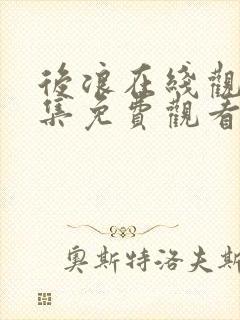 後浪在綫觀
集免費觀看
奧斯特洛夫斯